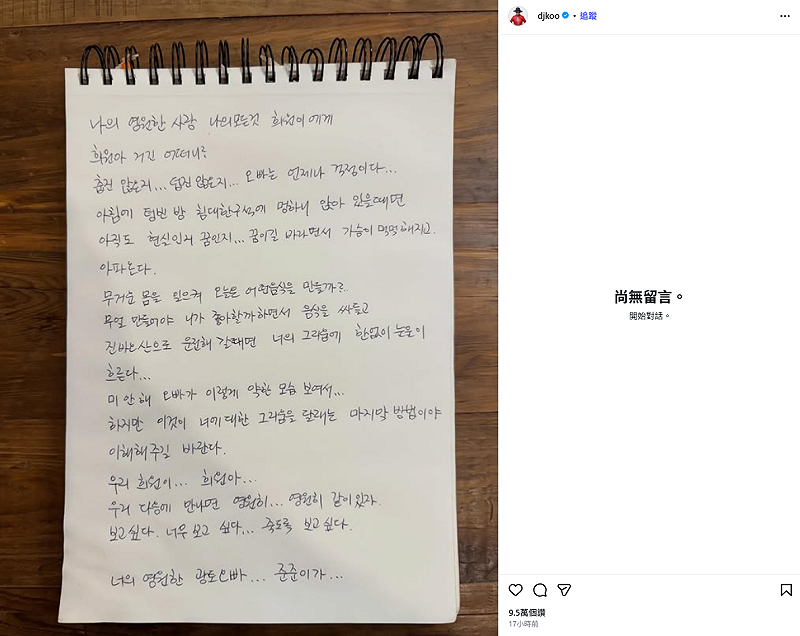 나의 영원한 사랑 나의모든것 희원이에게
희원아 거긴 어떠니?
춥진 않은지... 덥진 않은지... 오빠는 언제나 걱정이다...
아침에 텅빈 방 침대한구석에 멍하니 앉아 있을때면
아직도 현실인지 꿈인지... 꿈이길 바라면서 가슴이 먹먹해지고.
아파온다.
무거운 몸을 일으켜 오늘은 어떤음식을 만들까?
무얼 만들어야 니가 좋아할까하면서 음식을 싸들고
진바오산으로 운전해 갈때면 너의 그리움에 한없이 눈물이
흐른다...
미안해 오빠가 이렇게 약한 모습 보여서...
하지만 이것이 너에대한 그리움을 달래는 마지막 방법이야
이해해주길 바란다.
우리 희원이... 희원아...
우리 다음에 만나면 영원히... 영원히 같이있자.
보고싶다. 너무 보고 싶다... 죽도록 보고싶다.
너의 영원한 광토오빠... 준준이가...
djkoo • 追蹤
尚無留言。
開始對話。
9.5萬個讚
17小時前